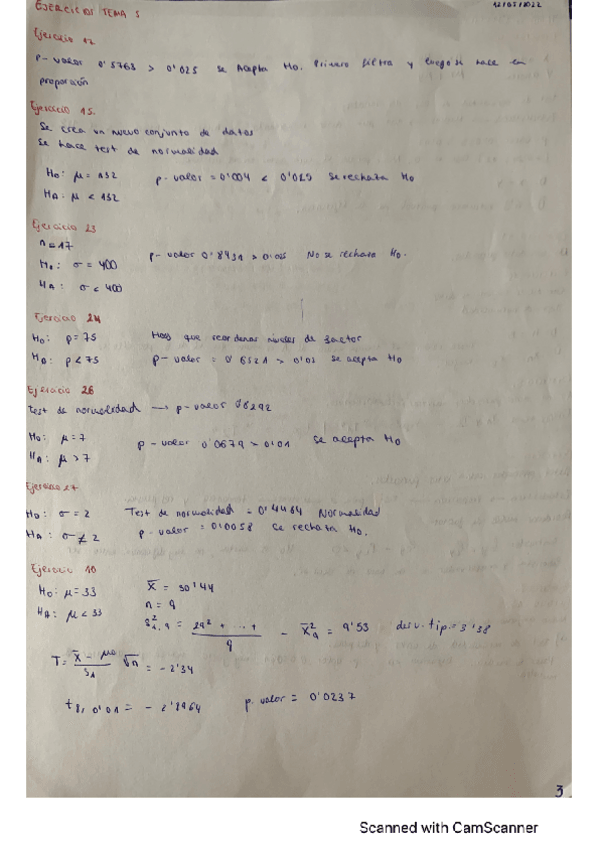 EJERCICIOS TEMA 5
12/05/2022
Ejercicio 12
P-valor 0'5763 > 0'025 se Acepta H0. Primero filtra y luego se hace en
proporción
Ejercicio 15.
Se crea un nuevo conjunto de datos
Se hace test de normalidad
H0: μ = 132 p-valor = 0'004 < 0'025 se rechaza H0
HA: μ < 132
Ejercicio 23
n = 17
H0: σ = 400 p-valor 0'8931 > 0'025 No se rechaza H0.
HA: σ < 400
Ejercicio 24
H0: p = 75 Hay que reordenar niveles de factor
H0: p < 75 p-valor = 0'6521 > 0'02 se acepta H0
Ejercicio 26
Test de normalidad → p-valor 0'6292
H0: μ = 7 p-valor 0'0679 > 0'01 se acepta H0
HA: μ > 7
Ejercicio 27
H0: σ = 2 Test de normalidad = 0'4464 Normalidad
HA: σ ≠ 2 p-valor = 0'0058 se rechaza H0.
Ejercicio 10
H0: μ = 33 x̄ = 30'44
HA: μ < 33 n = 9
= 29² + ... + / 9 - x̄²₉ = 9'53 desv. tip = 3'38
T = x̄ - μ0 / s₁ √n = -2'34
t 8, 0'01 = -2'8964 p.valor = 0'0237
3
Scanned with CamScanner